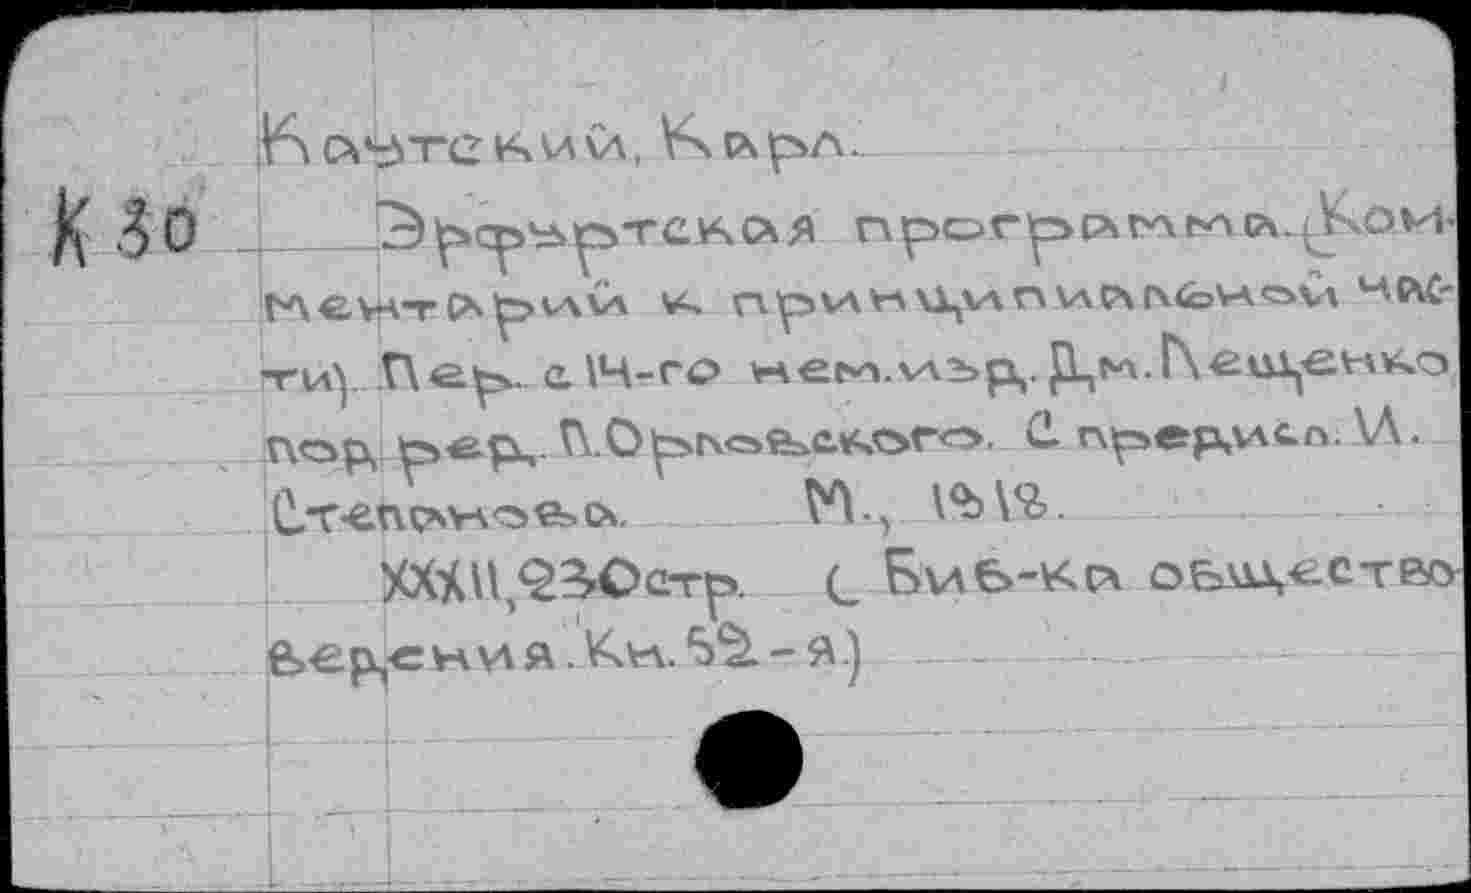 Каутский, Карл.
К 30
Эрфуртская программа. (Ком-
ментарий к принципиальной час-
ти) Пер. с 14-го нем. изд. Дм. Лещенко
под ред. П. Орловского. С предисл. И.
Степанова. М., 1918.
XXXII, 230 стр. (Биб-ка общество-
ведения. Кн. 52-я.)